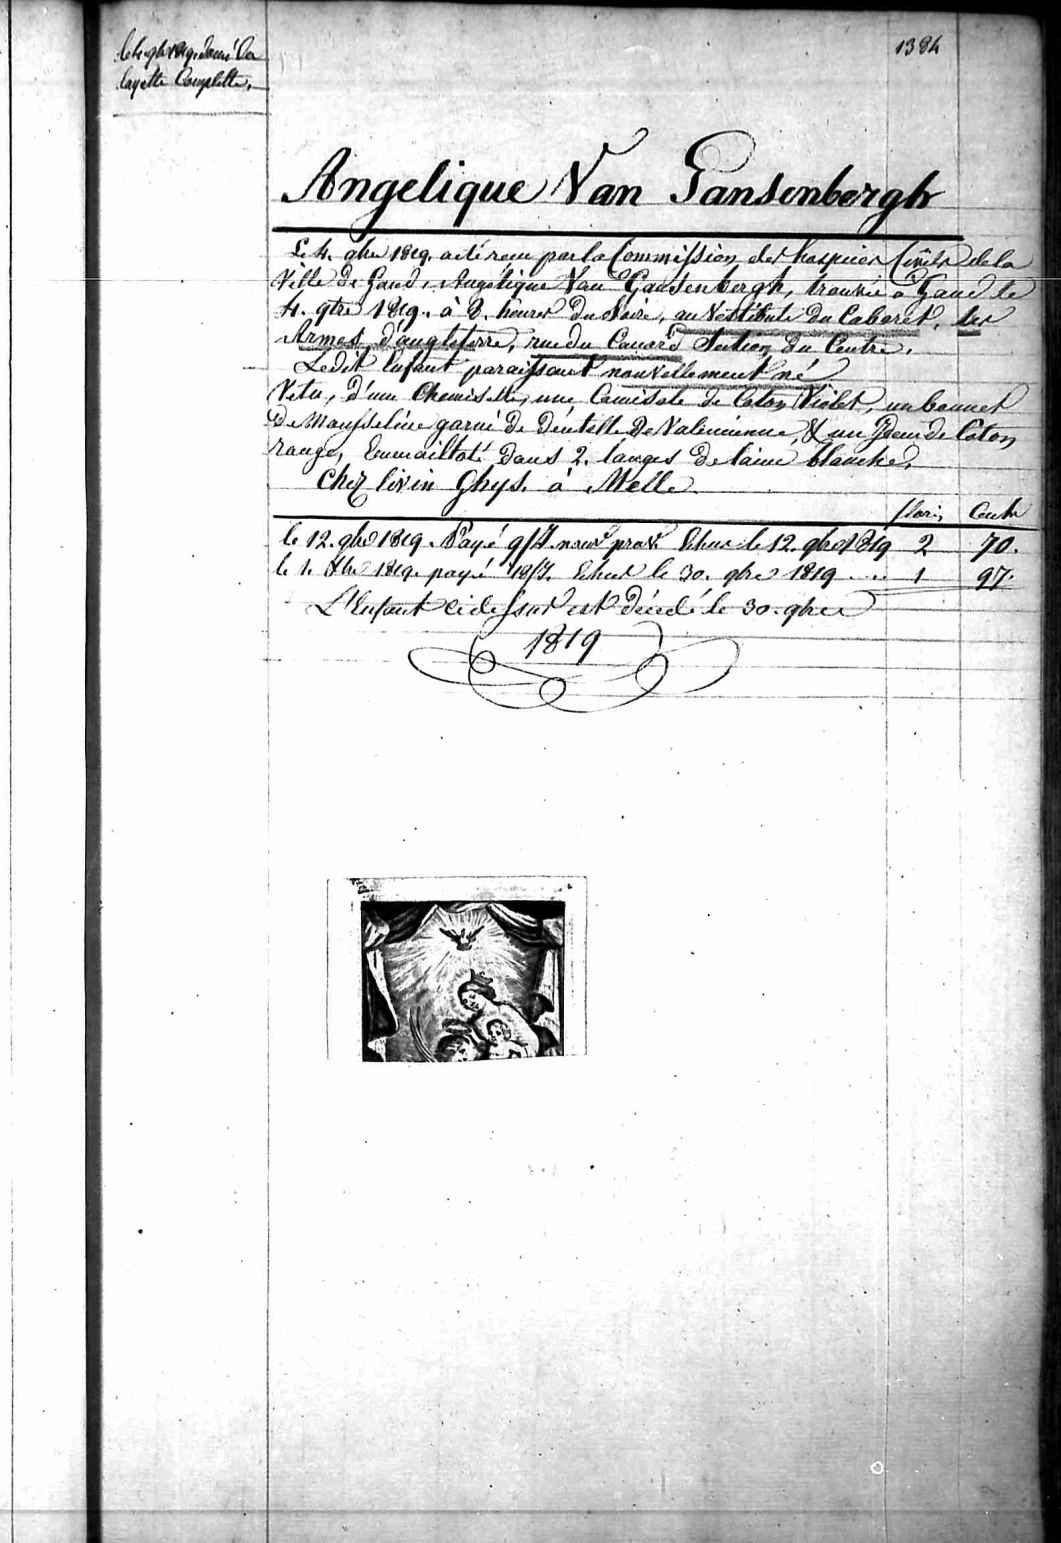 le 4 gbre 1819. donné la
layette Complette.
1384
Angelique Van Gansenbergh
Le 4. gbre 1819. a été reçu par la Commission des hospices Civils de la
Ville de Gand, Angélique Van Gansenbergh, trouvée à Gand le
4. gbre 1819. à 8. heures du Soire, au Vestibule du Cabaret, les
Armes d'angleterre, rue du Canard Section du Centre.
Ledit Enfant paraissant nouvellement né
Vetu, d'une Chemisette, une Camisole de Coton Violet, un bonnet
De Mousseline garni De Dentelle De Valencienne, & un de Coton
rouge, Emmailloté dans 2. langes de laine blanche.
Chez livin Ghys. à Melle.
flori, Cents
le 12. gbre 1819. Payé 9/7. Echus le 12. gbre 1819 2 70.
le 1. Xbre 1819. payé 18/7. Echus le 30. gbre 1819 .... 1 97.
L'Enfant ci dessus est Décédé le 30. gbre
1819